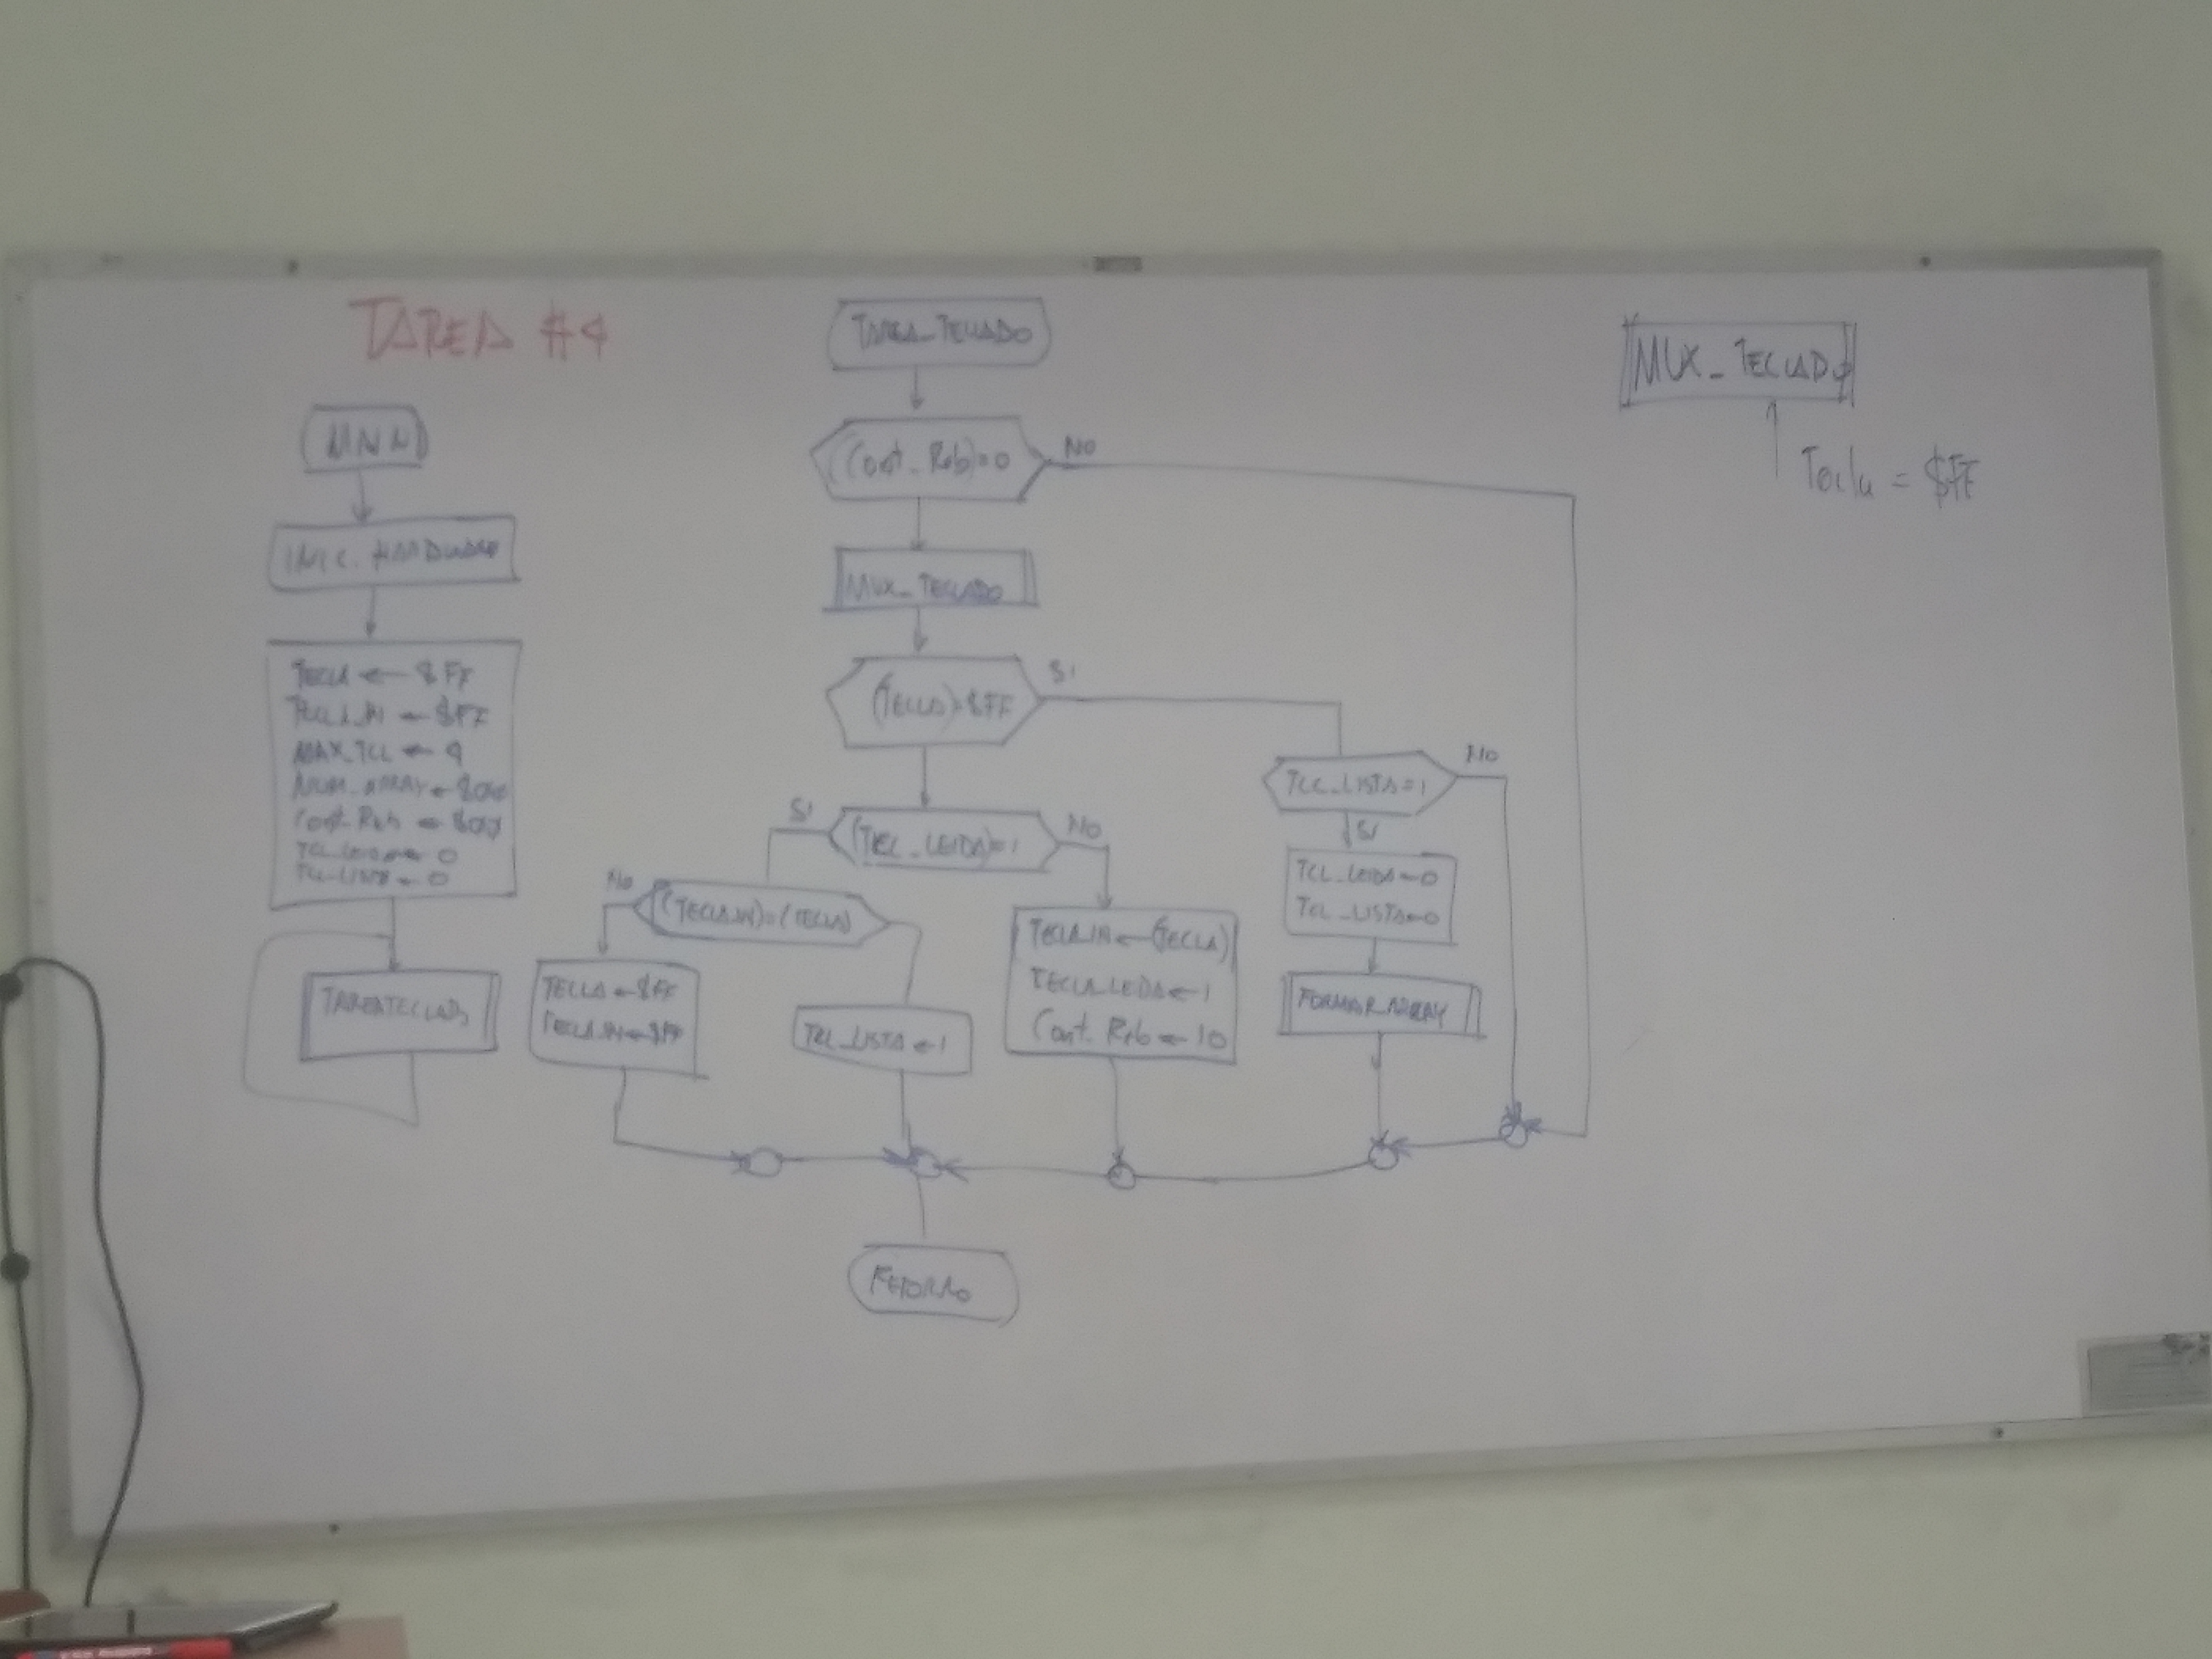 TAREA #4
MAIN
INIC. HARDWARE
TECLA ← $FF
TECLA_IN ← $FF
MAX_TCL ← 4
NUM_ARRAY ←
Cont_Reb ←
TCL_LEIDA ← 0
TCL_LISTA ← 0
TAREA TECLADO
TAREA_TECLADO
(Cont_Reb)=0
No
MUX_TECLADO
(TECLA)=$FF
Si
(TCL_LEIDA)=1
Si
No
(TECLA_IN)=(TECLA)
No
TECLA ← $FF
TECLA_IN ← $FF
TCL_LISTA ← 1
TECLA_IN ← (TECLA)
TECLA_LEIDA ← 1
Cont_Reb ← 10
TCL_LISTA=1
No
Si
TCL_LEIDA ← 0
TCL_LISTA ← 0
FORMAR_ARRAY
RETORNO
MUX_TECLADO
Tecla = $FF